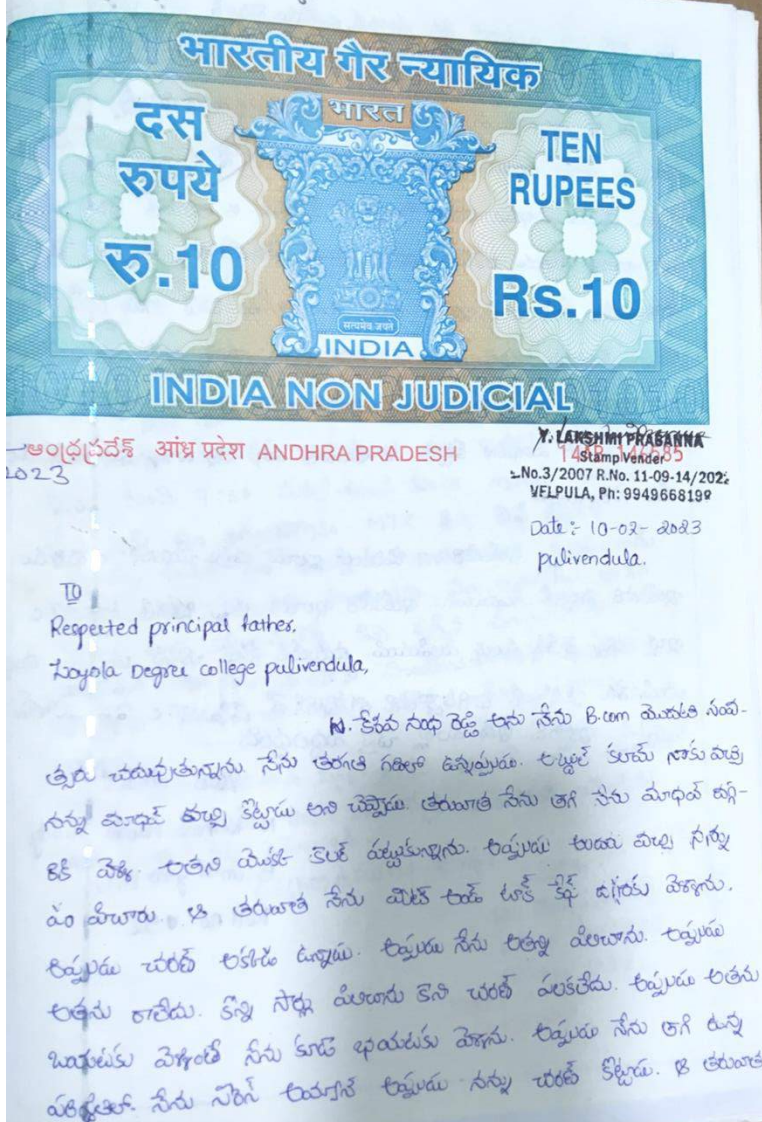 भारतीय गैर न्यायिक
भारत
दस
रुपये
रु.10
TEN
RUPEES
Rs.10
सत्यमेव जयते
INDIA
INDIA NON JUDICIAL
ఆంధ్రప్రదేశ్ आंध्र प्रदेश ANDHRA PRADESH
2023
Y. LAKSHMI PRASANNA
Stamp Vender
No.3/2007 R.No. 11-09-14/202
VELPULA, Ph: 9949668198
Date: 10-02-2023
pulivendula.
TO
Respected principal father,
Loyola Degree college pulivendula,
N. కేశవ నంధ రెడ్డి అను నేను B.com మొదటి సంవ-
త్సరు చదువుతున్నాను. నేను తరగతి గదిలో ఉన్నప్పుడు. అబ్దుల్ కలామ్ నాకు వచ్చి
నన్ను మాధవ్ వచ్చి కొట్టాడు అని చెప్పాడు. తరువాత నేను తాగి నేను మాధవ్ దగ్గ-
రికి వెళ్ళి అతని యొక్క కాలర్ పట్టుకున్నాను. అప్పుడు అందరు వచ్చి నన్ను
పంపించారు ఆ తరువాత నేను మీట్ అండ్ టాక్ కేఫ్ దగ్గరకు వెళ్ళాను.
అప్పుడు చరణ్ అక్కడ ఉన్నాడు. అప్పుడు నేను అతన్ని పిలిచాను. అప్పుడు
అతను రాలేదు. కొన్ని సార్లు పిలిచాను కాని చరణ్ పలకలేదు. అప్పుడు అతను
బయటకు వెళ్ళాంతే నేను కూడ భయటకు వెళ్ళాను. అప్పుడు నేను తాగి ఉన్న
పరిస్థితిలో. నేను అప్పుడు నన్ను చరణ్ కొట్టాడు. ఆ తరువాత